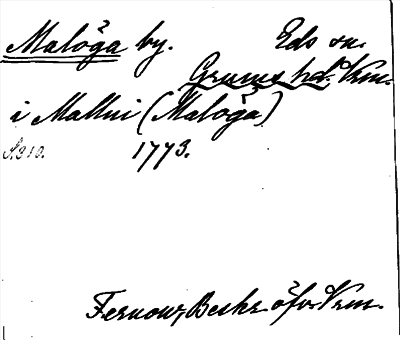 Maloga by. Eds sn.
Grums hd. Vrm.
i Mallni (Maloga)
S. 310. 1773.
Fernow, Beskr. öfv. Vrm.